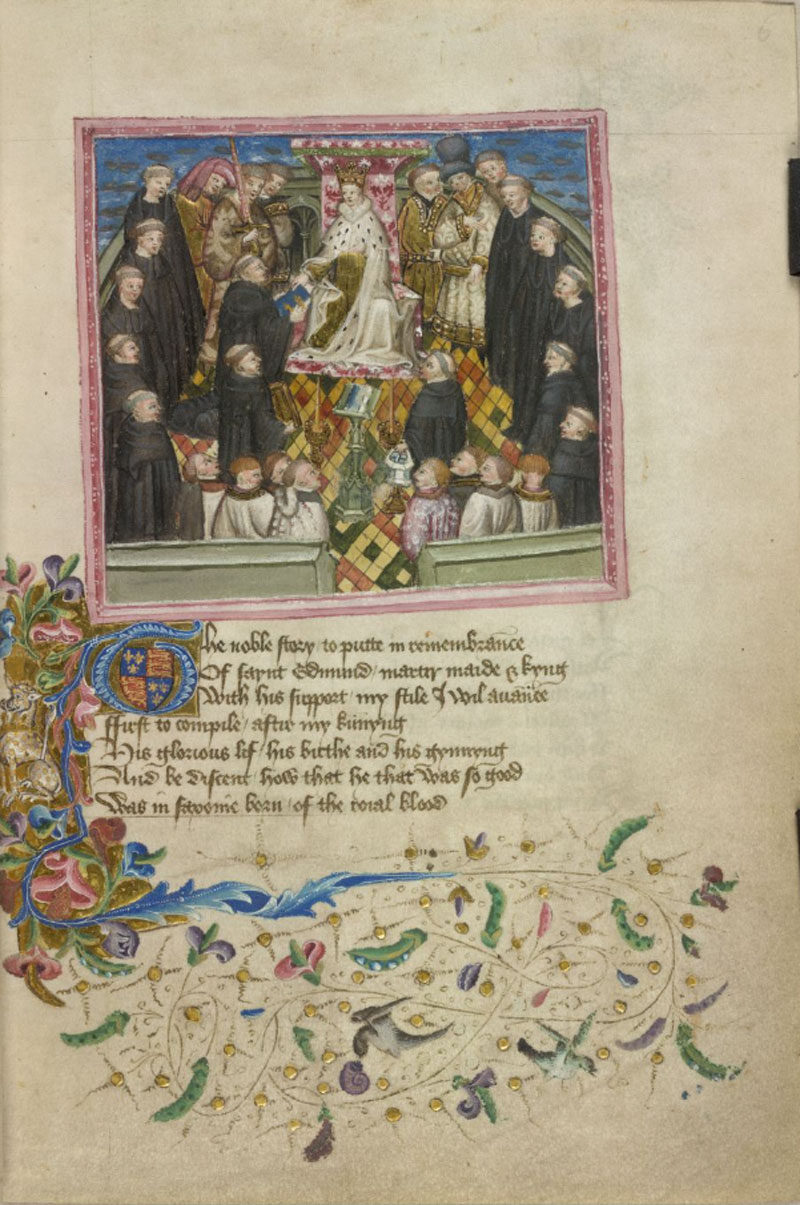 6
The noble story to putte in remembrance
Of saynt Edmund martir maide & kyng
With his support my stile I wil avaunce
ffirst to compile aftir my kunnyng
His glorious lif his birthe and his gynnyng
And be discent how that he that was so good
Was in saxonie born of the roial blood